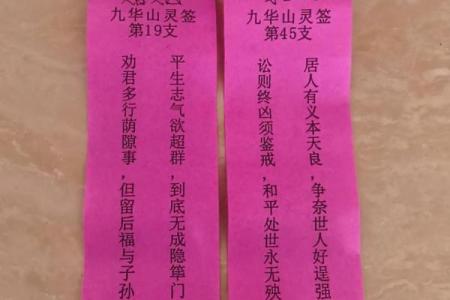 九华山灵签
第19支
平生志气欲超群,到底无成隐筚门
劝君多行荫隙事,但留后福与子孙
九华山灵签
第45支
居人有义本天良,争奈世人好逞强
讼则终凶须鉴戒,和平处世永无殃